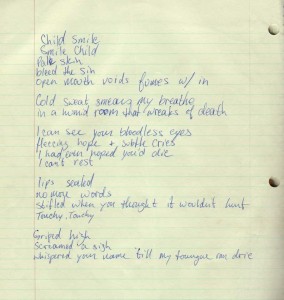 Child Smile
Smile Child
Pale skin
bleed the sin
open mouth voids fumes w/ in
Cold sweat smearing my breathe
in a humid room that wreaks of death
I can see your bloodless eyes
fleeing hope & subtle cries
I had even hoped you'd die
I can't rest
lips sealed
no more words
stifled when you thought it wouldn't hurt
Touchy, Touchy
Griped high
screamed a sigh
whispered your name till my tongue ran drie